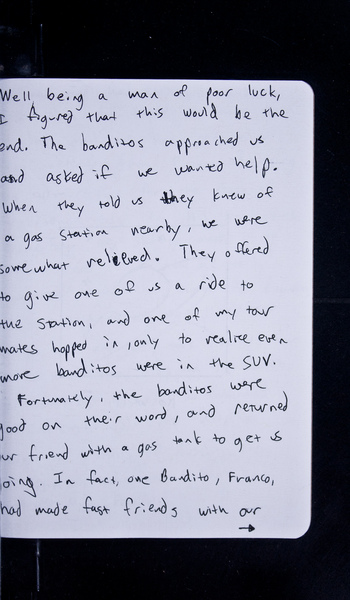 Well being a man of poor luck,
I figured that this would be the
end. The banditos approached us
and asked if we wanted help.
When they told us they knew of
a gas station nearby, we were
somewhat relieved. They offered
to give one of us a ride to
the station, and one of my tour
mates hopped in, only to realize even
more banditos were in the SUV.
Fortunately, the banditos were
good on their word, and returned
our friend with a gas tank to get us
going. In fact, one Bandito, Franco,
had made fast friends with our
→